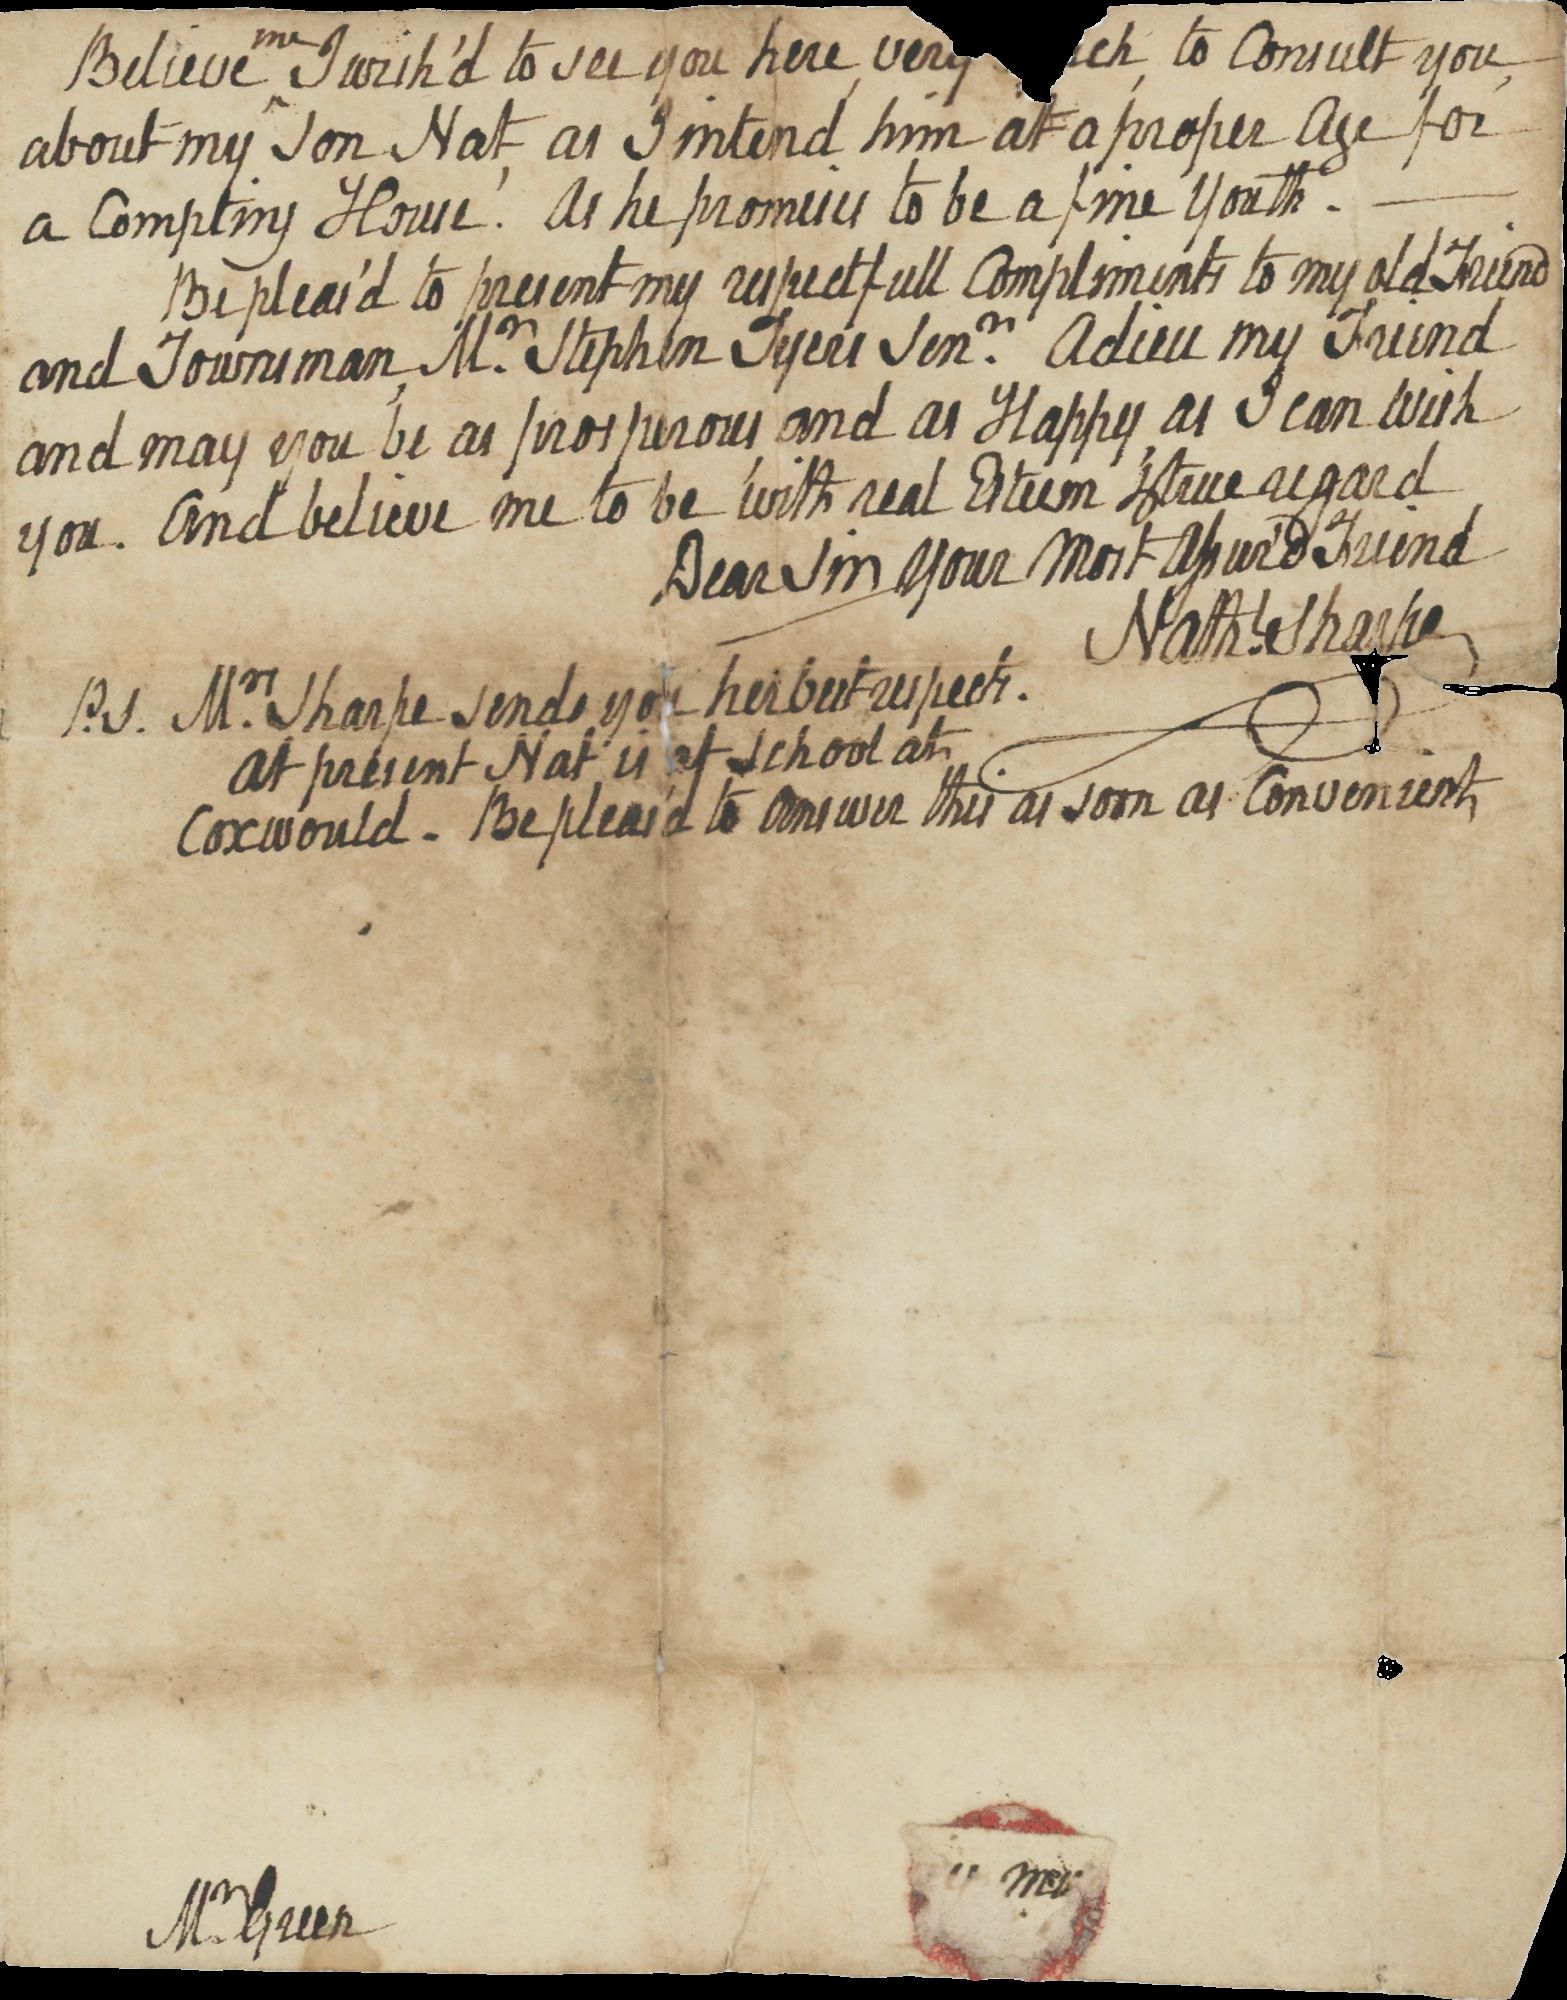 Believe ^me I wish'd to see you here very much, to Consult you,
about my Son Nat, as I intend him at a proper Age for
a Compting House. As he promises to be a fine Youth. —
Be pleas'd to present my respectfull Compliments to my old Friend
and Townsman, Mr. Stephen Tyers Senr. Adieu my Friend
and may you be as prosperous, and as Happy, as I can wish
you. And believe me to be with real Esteem & true regard
Dear Sir, Your Most Assur'd Friend
Nathl. Sharpe
P.S. Mrs. Sharpe sends you her best respects.
At present Nat is at School at
Coxwould - Be pleas'd to Answer this as soon as Convenient
Mr. Green